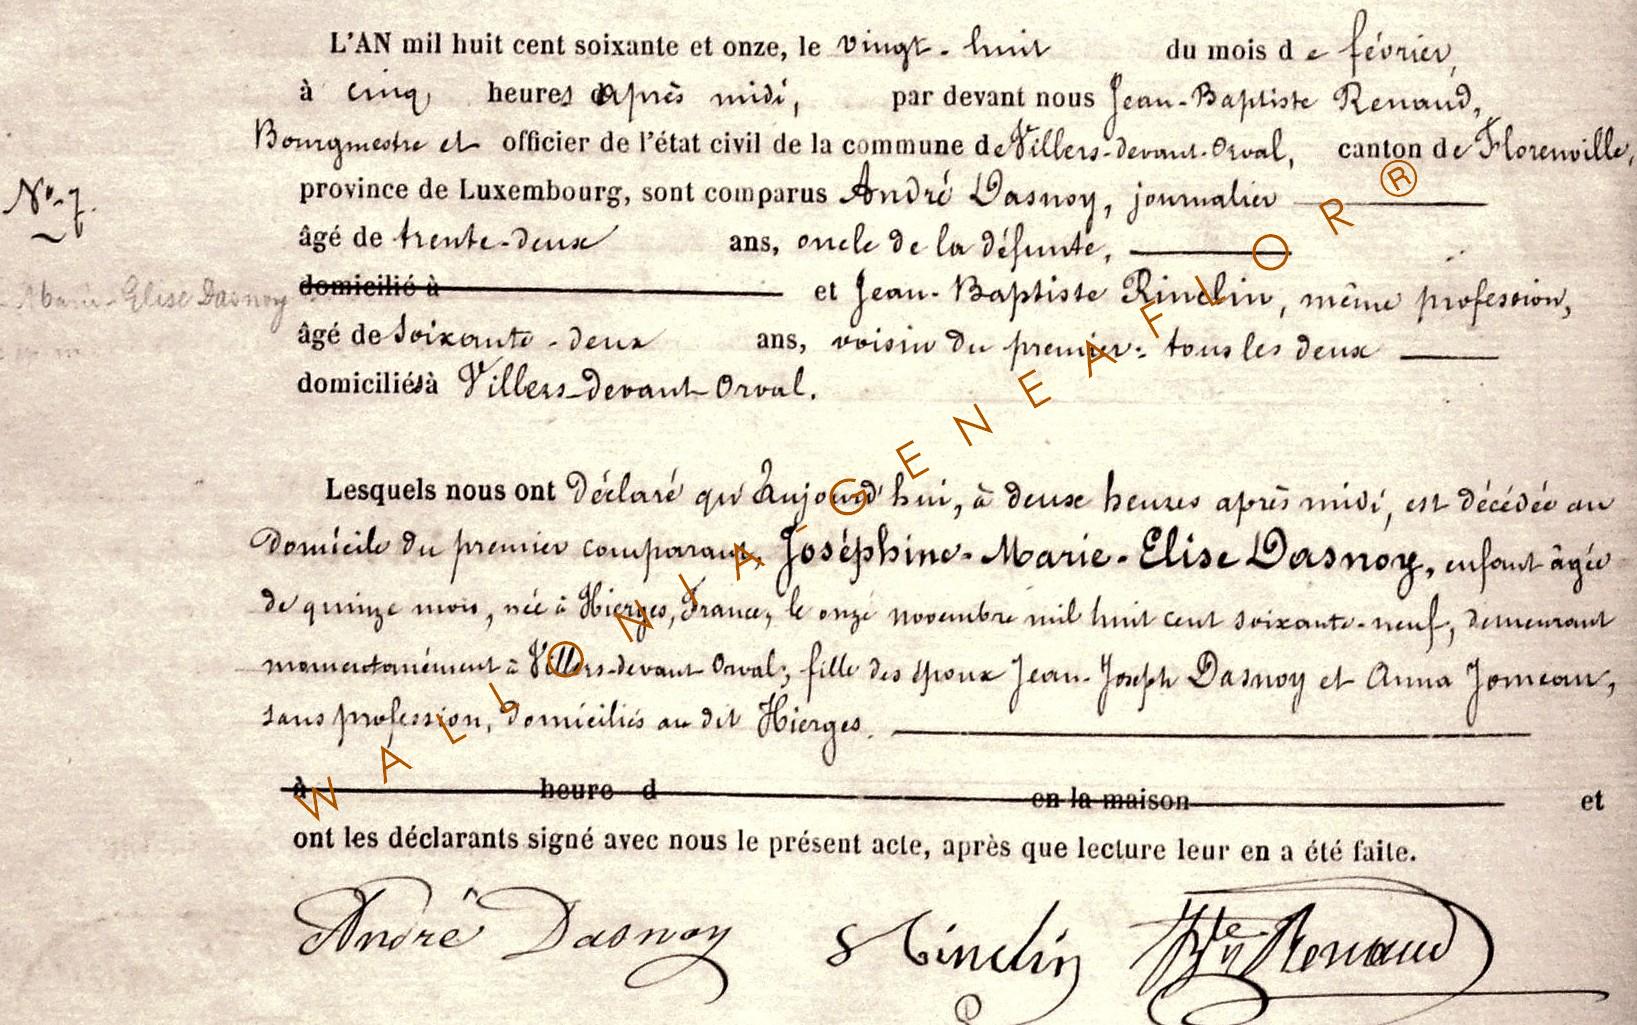 L'AN mil huit cent soixante et onze, le vingt-huit du mois de février,
à cinq heures après midi, par devant nous Jean-Baptiste Renaud,
Bourgmestre et officier de l'état civil de la commune de Villers-devant-Orval, canton de Florenville,
N°-7.
province de Luxembourg, sont comparus André Dasnoy, journalier
âgé de trente-deux ans, oncle de la défunte,
Marie-Elise Dasnoy
domicilié à et Jean-Baptiste Rinclin, même profession,
âgé de soixante-deux ans, voisin du premier: tous les deux
domiciliés à Villers-devant-Orval.
Lesquels nous ont déclaré qu'aujourd'hui, à deux heures après midi, est décédée au
domicile du premier comparant, Joséphine-Marie-Elise Dasnoy, enfant âgée
de quinze mois, née à Hierges, France, le onze novembre mil huit cent soixante-neuf, demeurant
momentanément à Villers-devant Orval; fille des époux Jean-Joseph Dasnoy et Anna Jomeau,
sans profession, domiciliés au dit Hierges.
à heure d en la maison et
ont les déclarants signé avec nous le présent acte, après que lecture leur en a été faite.
André Dasnoy Rinclin JBte Renaud
WALLONIA-GENEAFLOR®